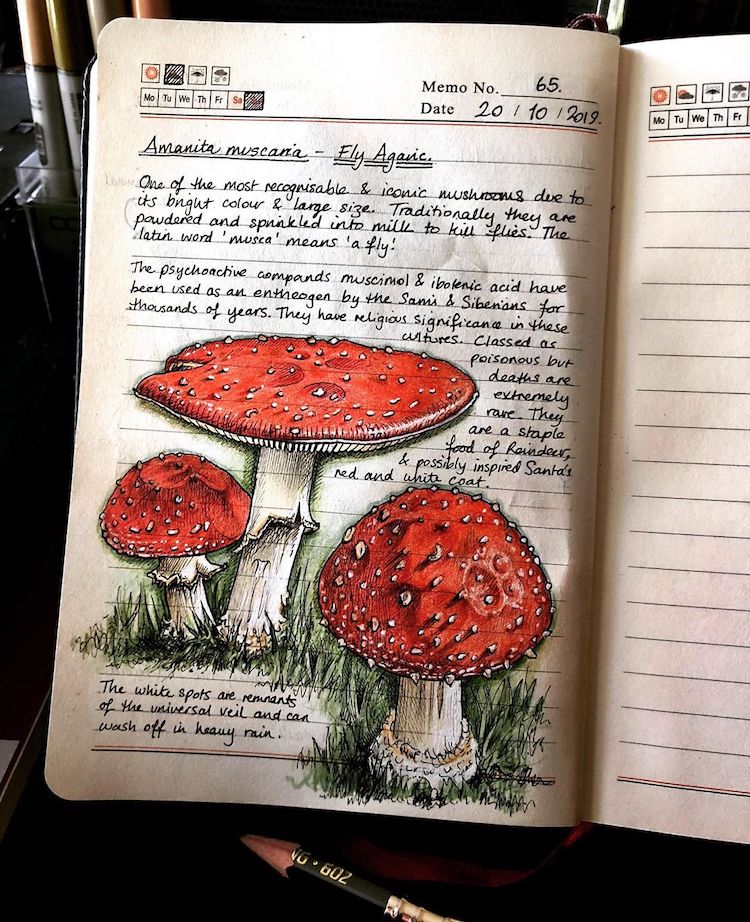 Memo No. 65.
Mo Tu We Th Fr Sa
Date 20 / 10 / 2019.
Mo Tu We Th Fr
Amanita muscaria - Fly Agaric.
One of the most recognisable & iconic mushrooms due to
its bright colour & large size. Traditionally they are
powdered and sprinkled into milk to kill flies. The
latin word 'musca' means 'a fly'.
The psychoactive compands muscimol & ibotenic acid have
been used as an entheogen by the Sami & Siberians for
thousands of years. They have religious significance in these
cultures. Classed as
poisonous but
deaths are
extremely
rare. They
are a staple
food of Reindeer,
& possibly inspired Santa's
red and white coat.
The white spots are remnants
of the universal veil and can
wash off in heavy rain.
NG · 602